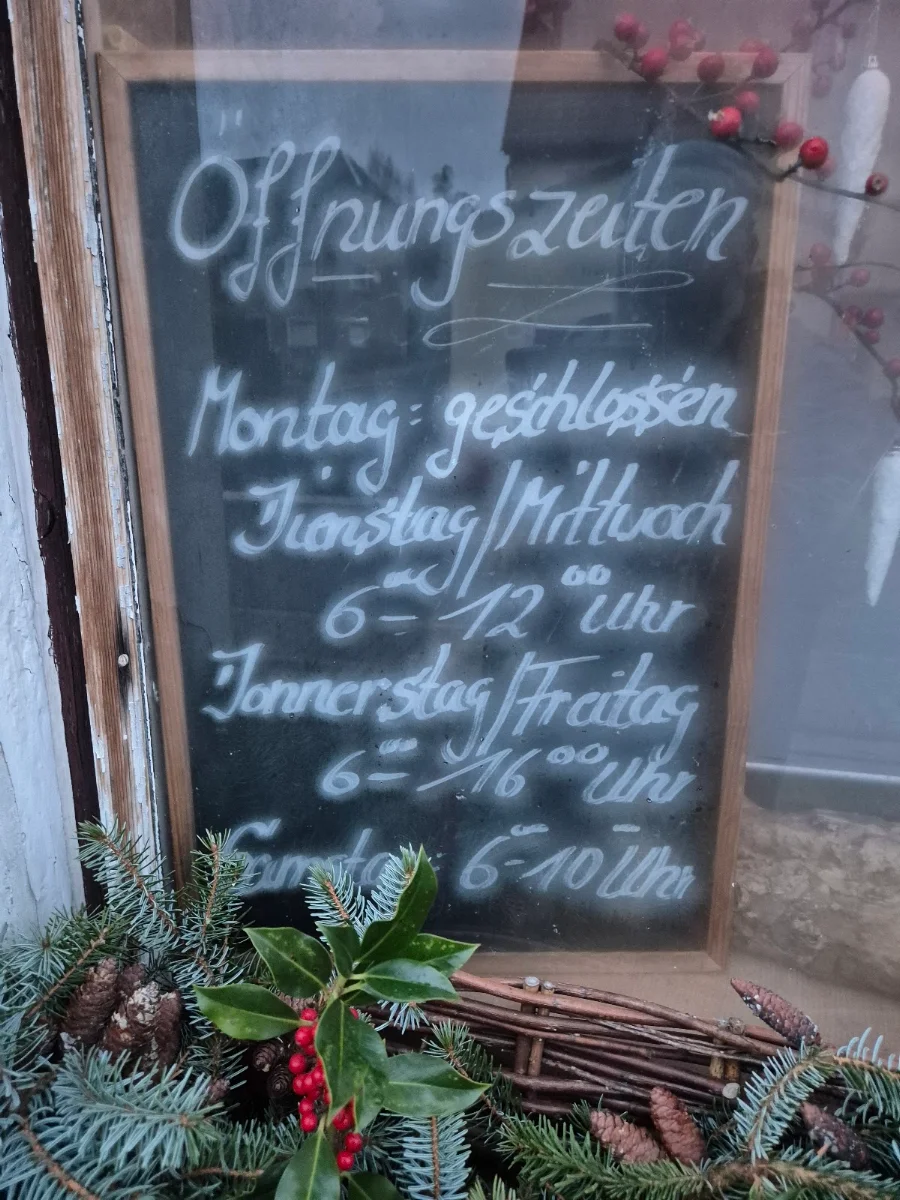 Öffnungszeiten
Montag: geschlossen
Dienstag/Mittwoch
6⁰⁰ - 12⁰⁰ Uhr
Donnerstag/Freitag
6⁰⁰ - 16⁰⁰ Uhr
Samstag: 6⁰⁰-10⁰⁰ Uhr